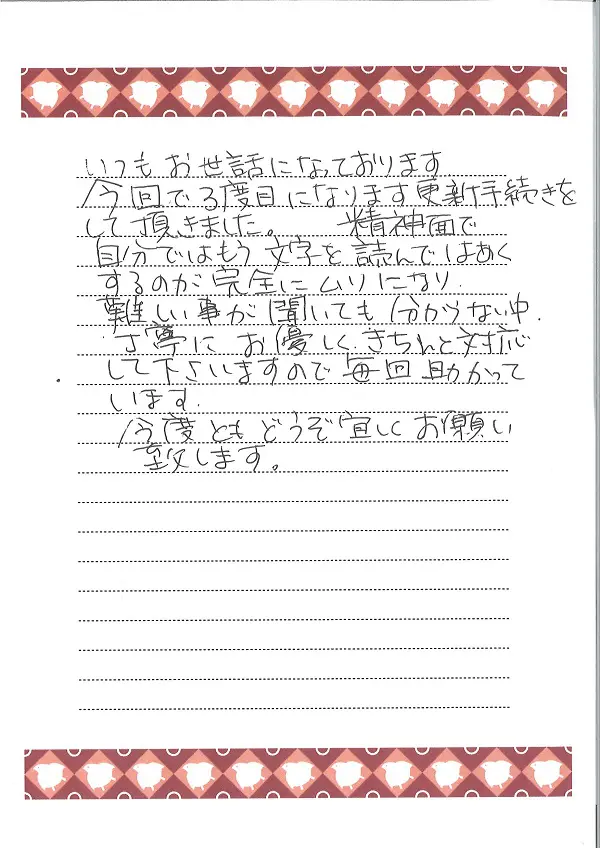 いつもお世話になっております.
今回で3度目になります更新手続きを
して頂きました。 精神面で
自分ではもう文字を読んではあく
するのが完全にムリになり.
難しい事が聞いても分からない中.
丁寧にお優しくきちんと対応
して下さいますので毎回助かって
います.
今度ともどうぞ宜しくお願い
致します。